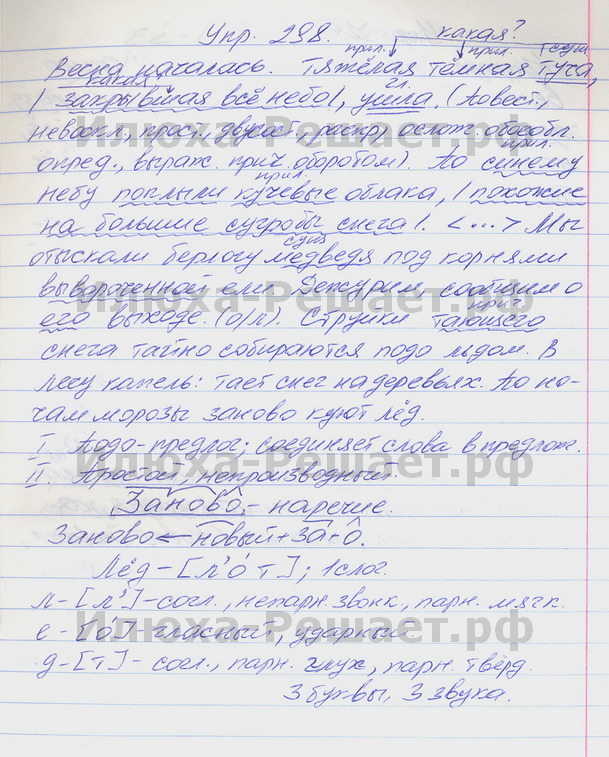 Упр. 298.
какая?
прил. прил. сущ.
Весна началась. Тяжёлая тёмная туча,
какая? гл.
| закрывшая всё небо|, ушла. (Повест.,
невоскл., прост., двусост., распр., ослож. обособл.
опред., выраж. прич. оборотом). По синему
прил.
прил.
небу поплыли кучевые облака, | похожие
на большие сугробы снега|. <...> Мы
сущ.
отыскали берлогу медведя под корнями
вывороченной ели. Дежурим, сообщим о
прич.
его выходе. (о/п). Струйки тающего
снега тайно собираются подо льдом. В
лесу капель: тает снег на деревьях. По но-
чам морозы заново куют лёд.
I. Подо-предлог; соединяет слова в предлож.
II. Простой, непроизводный.
Заново - наречие.
Заново ← новый + за + о.
Лёд - [л'о́т]; 1 слог.
л - [л'] - согл., непарн. звонк., парн. мягк.
е - [о́] - гласный, ударный.
д - [т] - согл., парн. глух., парн. твёрд.
3 буквы, 3 звука.
Илюха-Решает.рф
Илюха-Решает.рф
Илюха-Решает.рф
Илюха-Решает.рф
Илюха-Решает.рф